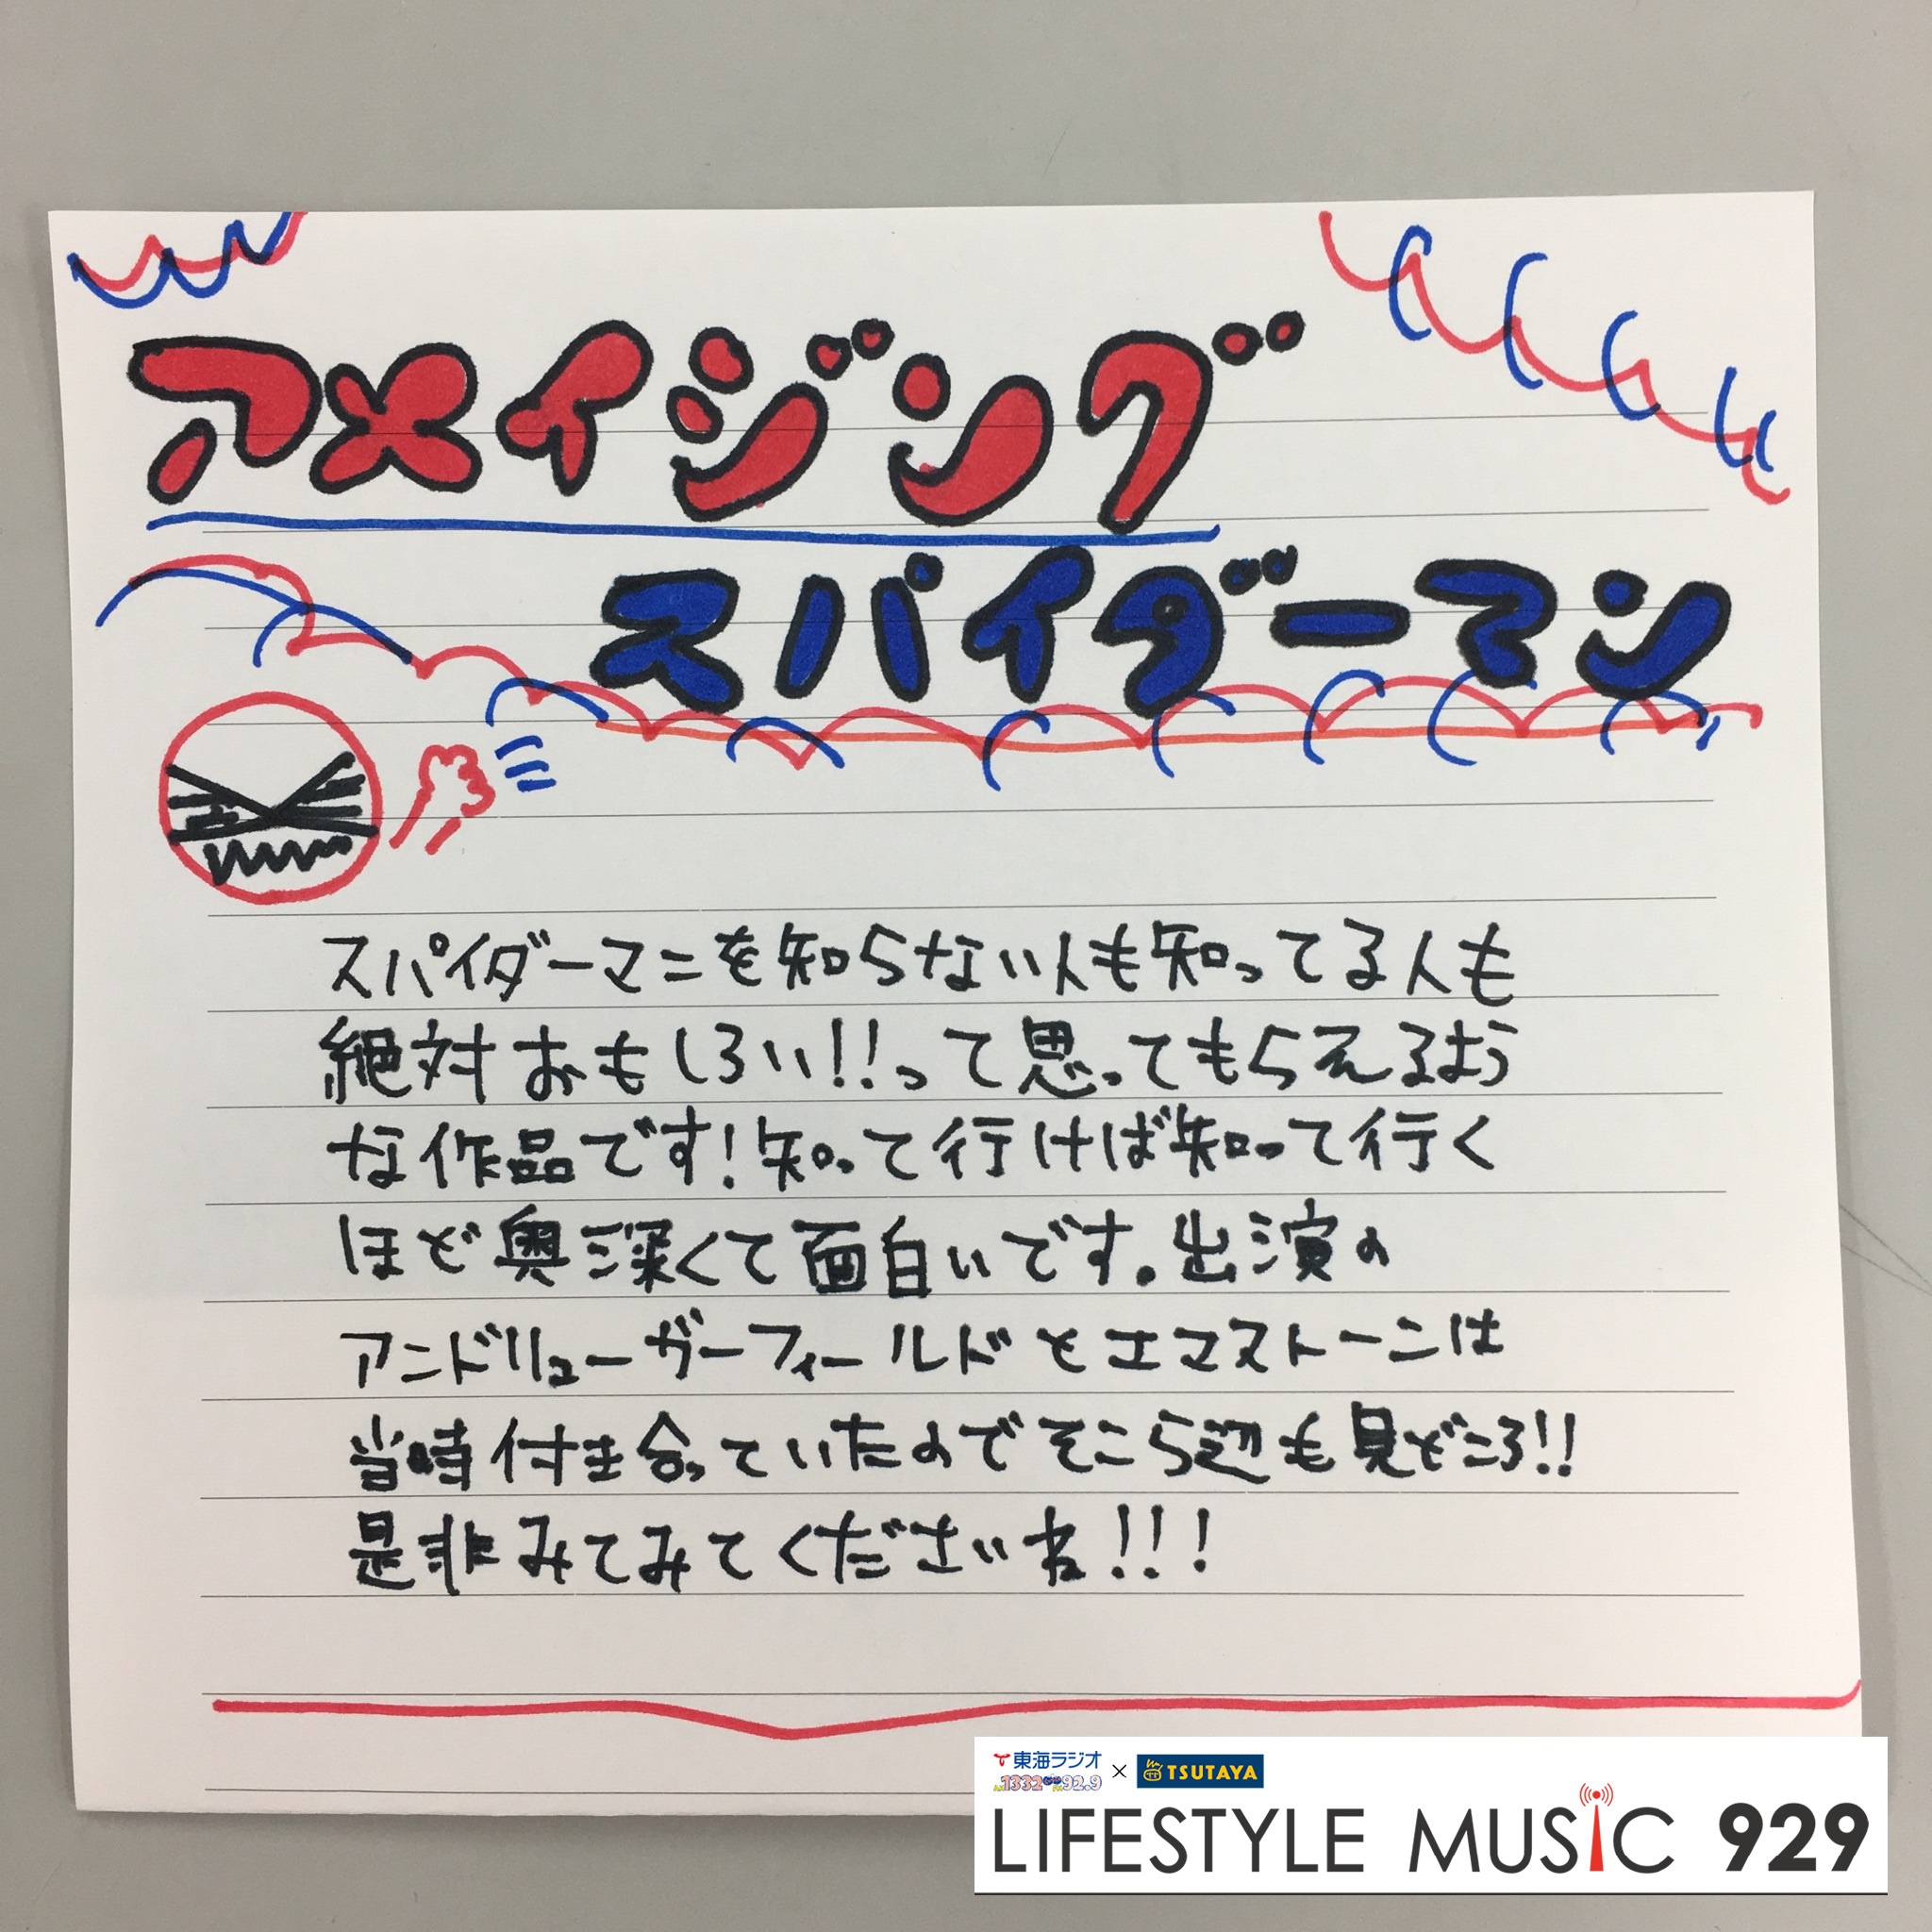 アメイジング
スパイダーマン
スパイダーマンを知らない人も知ってる人も
絶対おもしろい!!って思ってもらえるよう
な作品です!知って行けば知って行く
ほど奥深くて面白いです。出演の
アンドリューガーフィールドとエマストーンは
当時付き合っていたのでそこら辺も見どころ!!
是非みてみてくださいね!!!
東海ラジオ
1332 92.9 × TSUTAYA
LIFESTYLE MUSIC 929